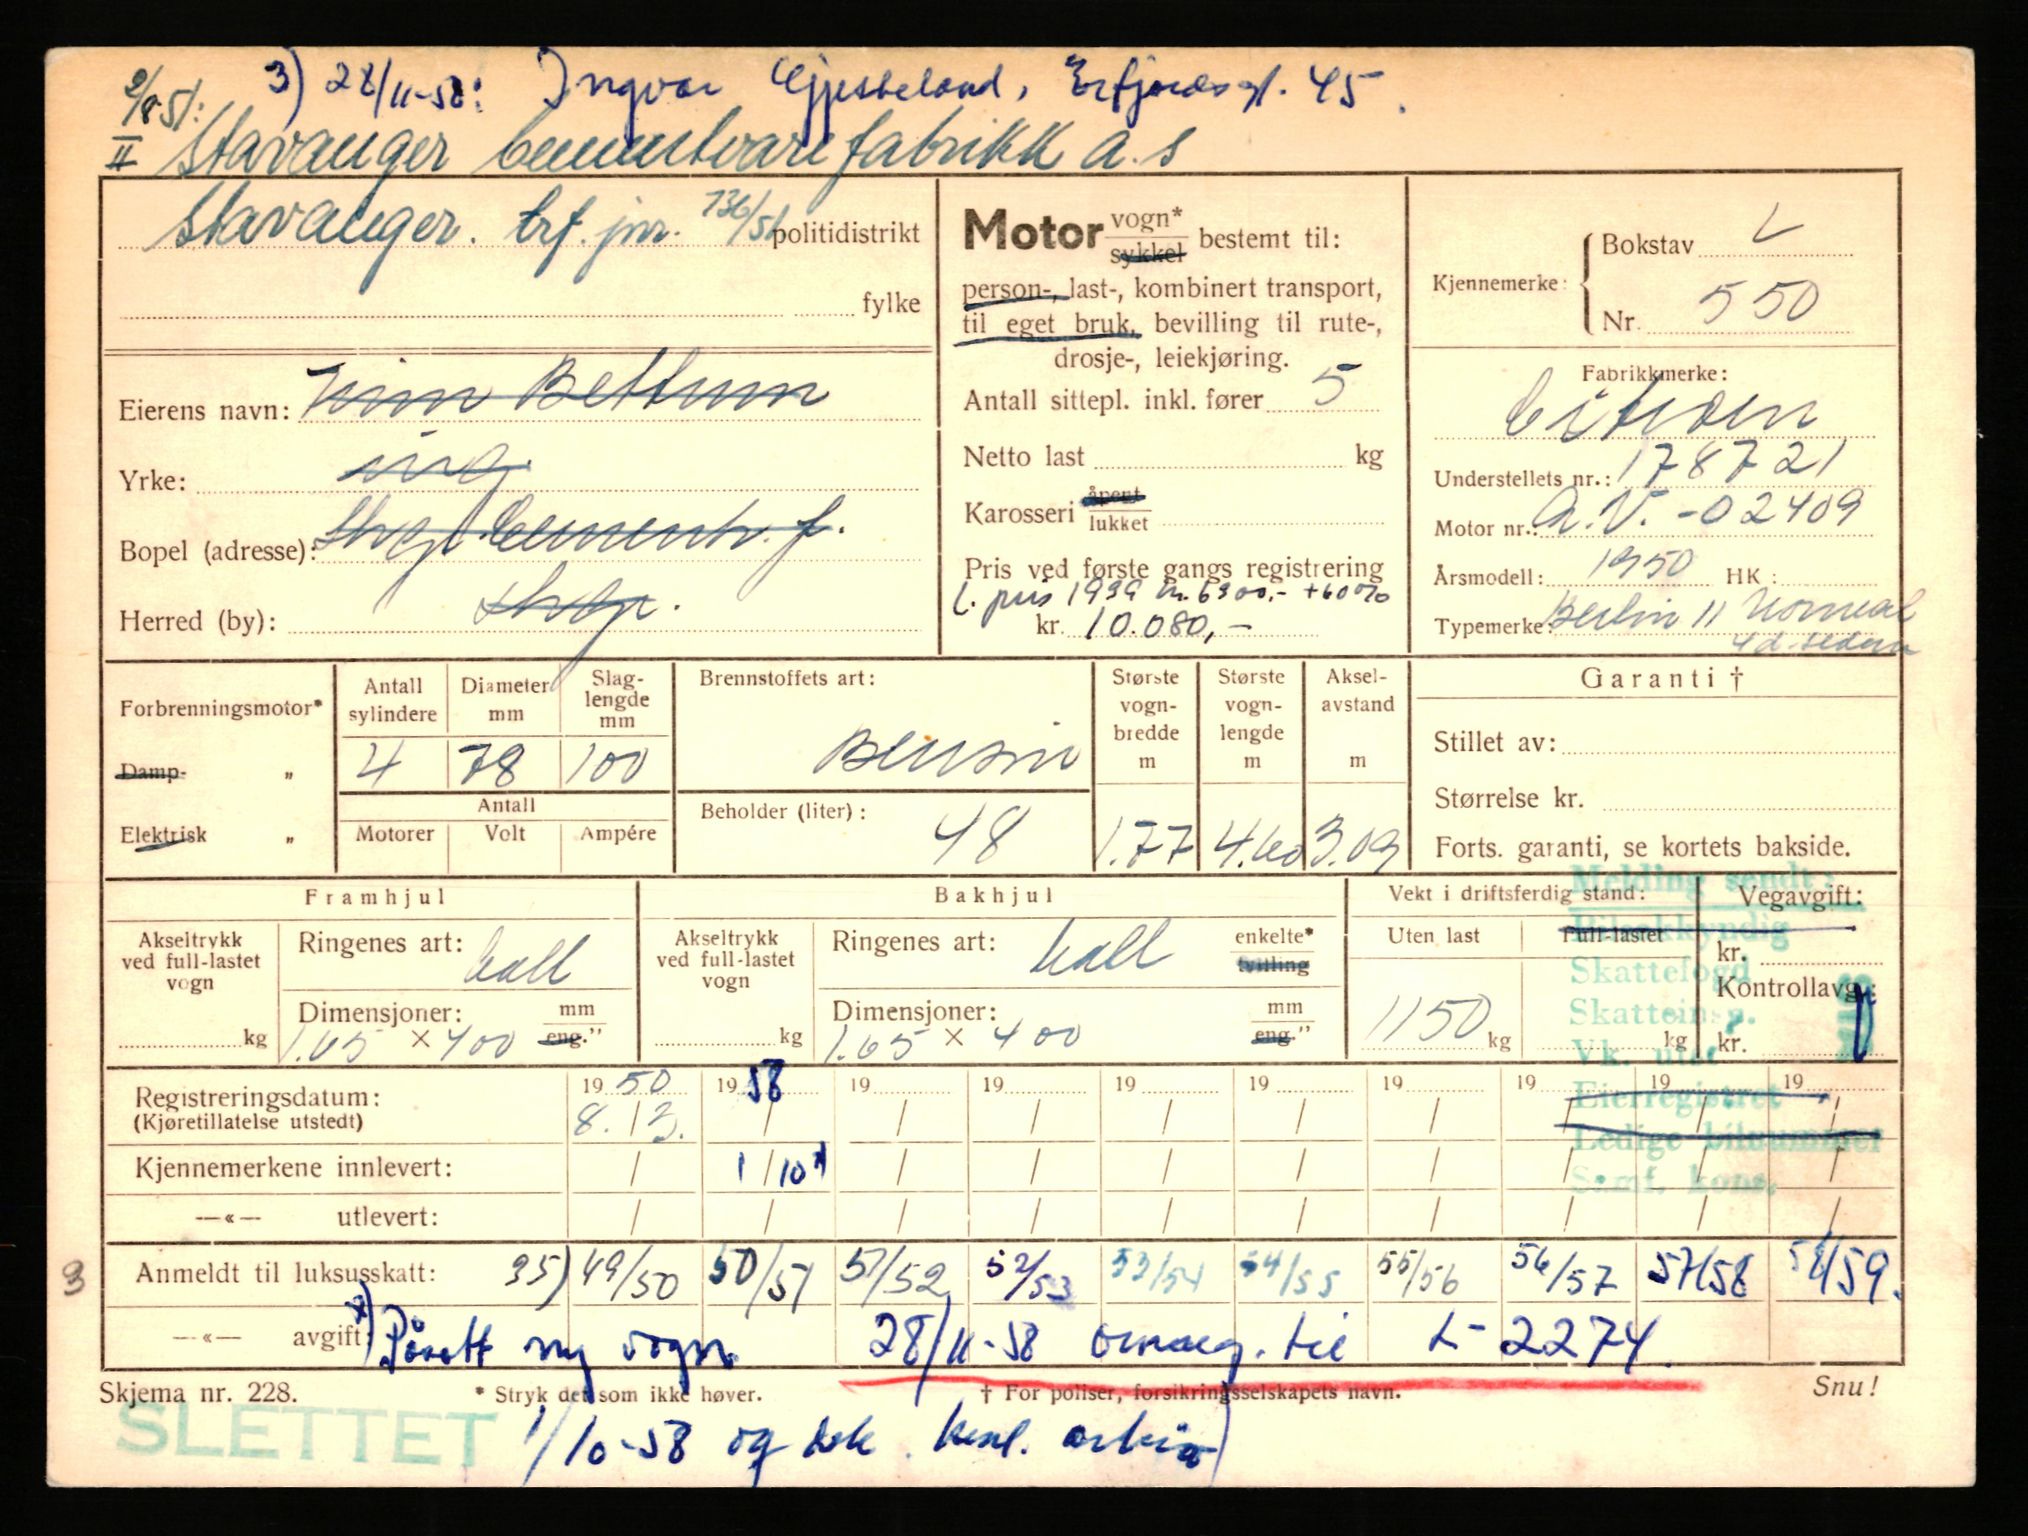 3) 28/11-58: Ingvar Gjesteland, Erfjordsgt. 45.
2/8 51:
II Stavanger Cementvarefabrikk a.s
Stavanger. trf. jnr. 736/51 politidistrikt
fylke
Eierens navn: Finn Bettum
Yrke: ing.
Bopel (adresse): Stvgr. Cementv.f.
Herred (by): Stvgr.
Motor vogn* sykkel bestemt til:
person-, last-, kombinert transport,
til eget bruk, bevilling til rute-,
drosje-, leiekjøring.
Antall sittepl. inkl. fører 5
Netto last kg
Karosseri åpent lukket
Pris ved første gangs registrering
L. pris 1939 kr. 6300,- +60%
kr. 10.080,-
Kjennemerke: Bokstav L
Nr. 550
Fabrikkmerke:
Citroen
Understellets nr.: 178721
Motor nr.: A.V.-02409
Årsmodell: 1950 HK:
Typemerke: Berlin 11 Normal
4 d. sedan
Forbrenningsmotor*
Damp- „
Elektrisk „
Antall sylindere 4
Diameter mm 78
Slag-lengde mm 100
Antall
Motorer Volt Ampére
Brennstoffets art:
Bensin
Beholder (liter):
48
Største vogn-bredde m 1.77
Største vogn-lengde m 4.60
Aksel-avstand m 3.09
Garanti †
Stillet av:
Størrelse kr.
Forts. garanti, se kortets bakside.
Framhjul
Akseltrykk ved full-lastet vogn kg
Ringenes art: ball
Dimensjoner: mm eng."
1.65 × 400
Bakhjul
Akseltrykk ved full-lastet vogn kg
Ringenes art: ball enkelte* tvilling
Dimensjoner: mm eng."
1.65 × 400
Vekt i driftsferdig stand:
Uten last Full-lastet
1150 kg kg
Vegavgift:
kr.
Kontrollavg.:
kr.
Melding sendt:
Bilsakkyndig
Skattefogd
Skatteinsp.
Vk. utst
Eierregistret
Ledige bilnummer
Samf. kons.
Registreringsdatum: 19 50 19 58 19 19 19 19 19 19 19 19
(Kjøretillatelse utstedt) 8. / 3. / / / / / / / / /
Kjennemerkene innlevert: / 1 / 10 x / / / / / / / /
—«— utlevert: / / / / / / / / / /
3 Anmeldt til luksusskatt: 35) 49/50 50/51 51/52 52/53 53/54 54/55 55/56 56/57 57/58 58/59.
—«— avgift: x) Påsatt ny vogn 28/11-58 omreg. til L-2274.
Skjema nr. 228. * Stryk det som ikke høver. † For poliser, forsikringsselskapets navn. Snu!
SLETTET 1/10-58 og